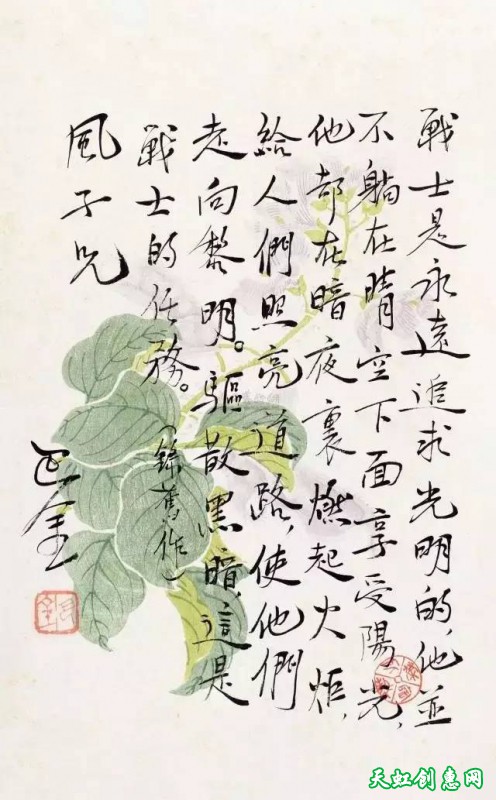 戰士是永遠追求光明的，他並
不躺在晴空下面享受陽光，
他却在暗夜裏燃起火炬，
給人們照亮道路，使他們
走向黎明。驅散黑暗，這是
戰士的任務。
（錄舊作）
風子兄
巴金
天虹创意网